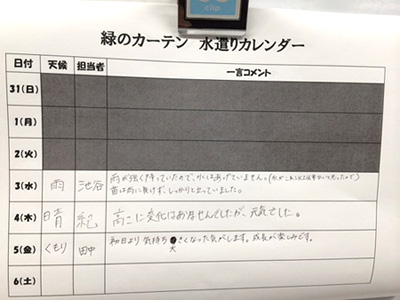 clip
緑のカーテン 水遣りカレンダー
日付 天候 担当者 一言コメント
31(日)
1(月)
2(火)
3(水) 雨 池谷 雨が強く降っていたので、水はあげていません。
苗は雨に負けず、しっかりと立っていました。
4(木) 晴 紀 高さに変化はありませんでしたが、元気でした。
5(金) くもり 田中 初日より気持ち大きくなった気がします。成長が楽しみです。
6(土)